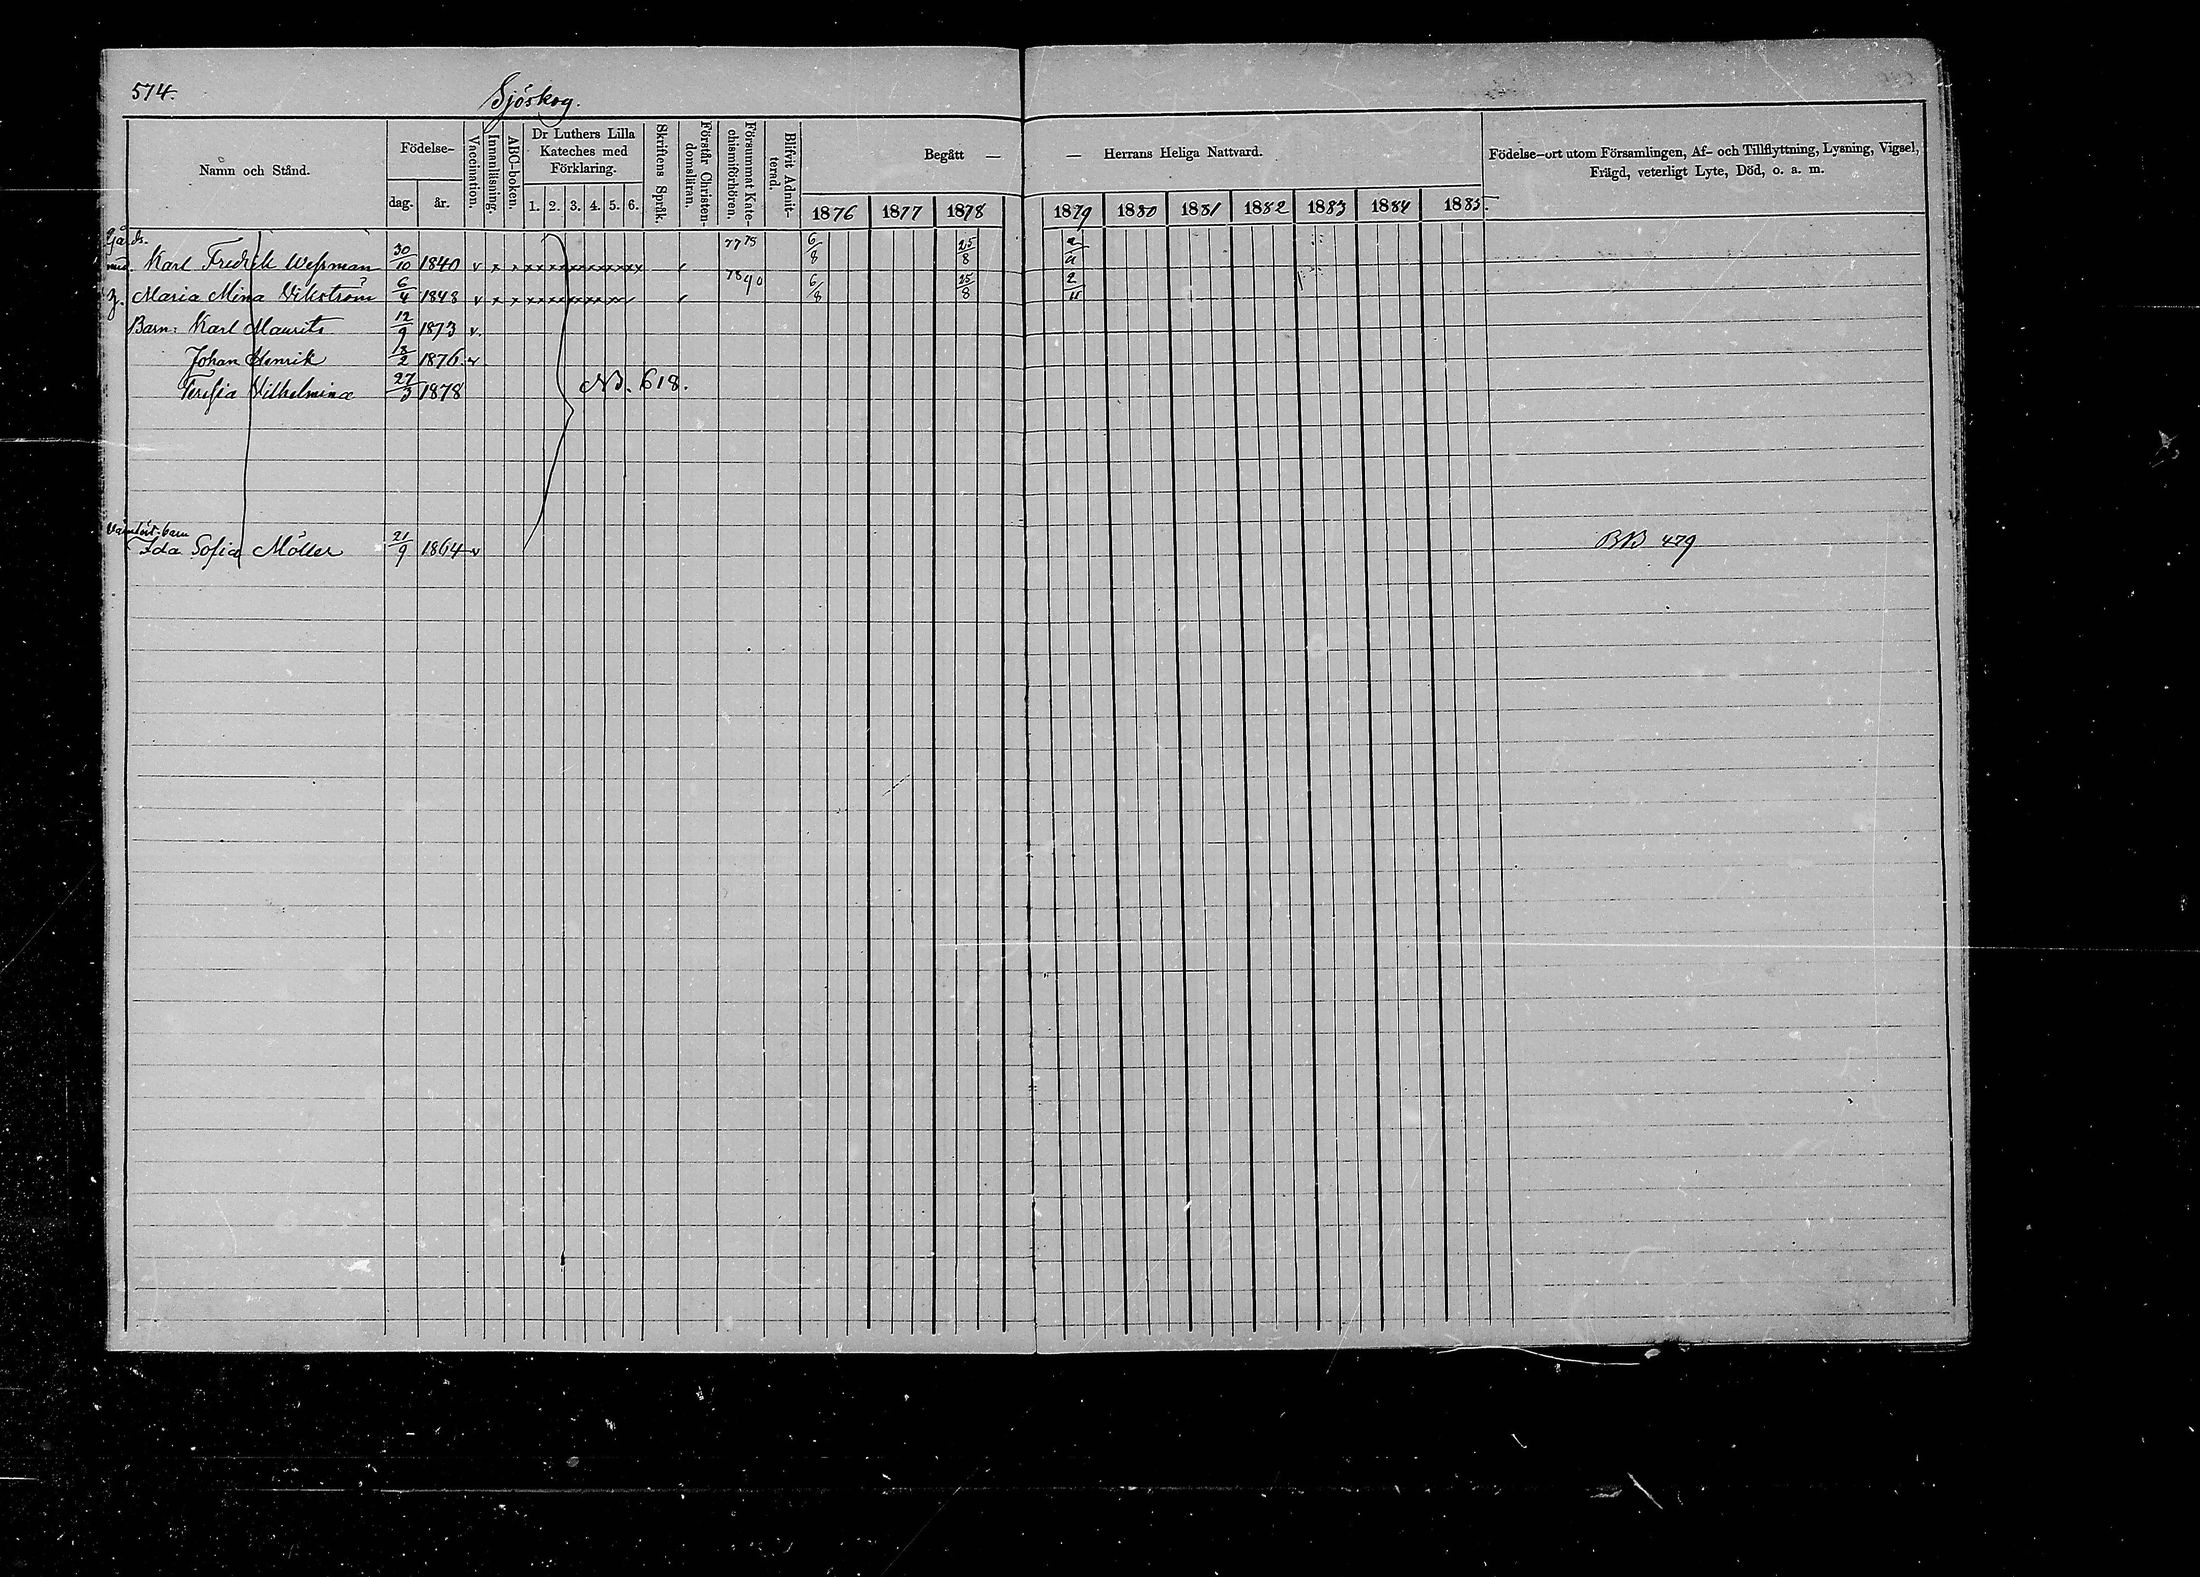 574.
Sjöskog.
Namn och Stånd.
Födelse-
dag.
år.
Vaccination.
Innanläsning.
ABC-boken.
Dr Luthers Lilla
Kateches med
Förklaring.
1. 2. 3. 4. 5. 6.
Skriftens Språk.
Förstår Christen-
domsläran.
Försummat Kate-
chismiförhören.
Blifvit Admit-
terad.
Begått — — Herrans Heliga Nattvard.
1876 1877 1878 1879 1880 1881 1882 1883 1884 1885.
Födelse-ort utom Församlingen, Af- och Tillflyttning, Lysning, Vigsel,
Frägd, veterligt Lyte, Död, o. a. m.
Gårds-
Karl Fredrik Wessman 30/10 1840 v x x x x x x x x x x x x x x 77 6/8 25/8 2/11
Maria Mina Vikström 6/4 1848 v x x x x x x x x x x x x 78 90 6/8 25/8 2/11
Barn: Karl Maurits 12/9 1873 v.
Johan Henrik 18/2 1876 v
Teresia Vilhelmina 27/3 1878 NB. 618.
barn
Ida Sofia Möller 21/9 1864 v BB 479